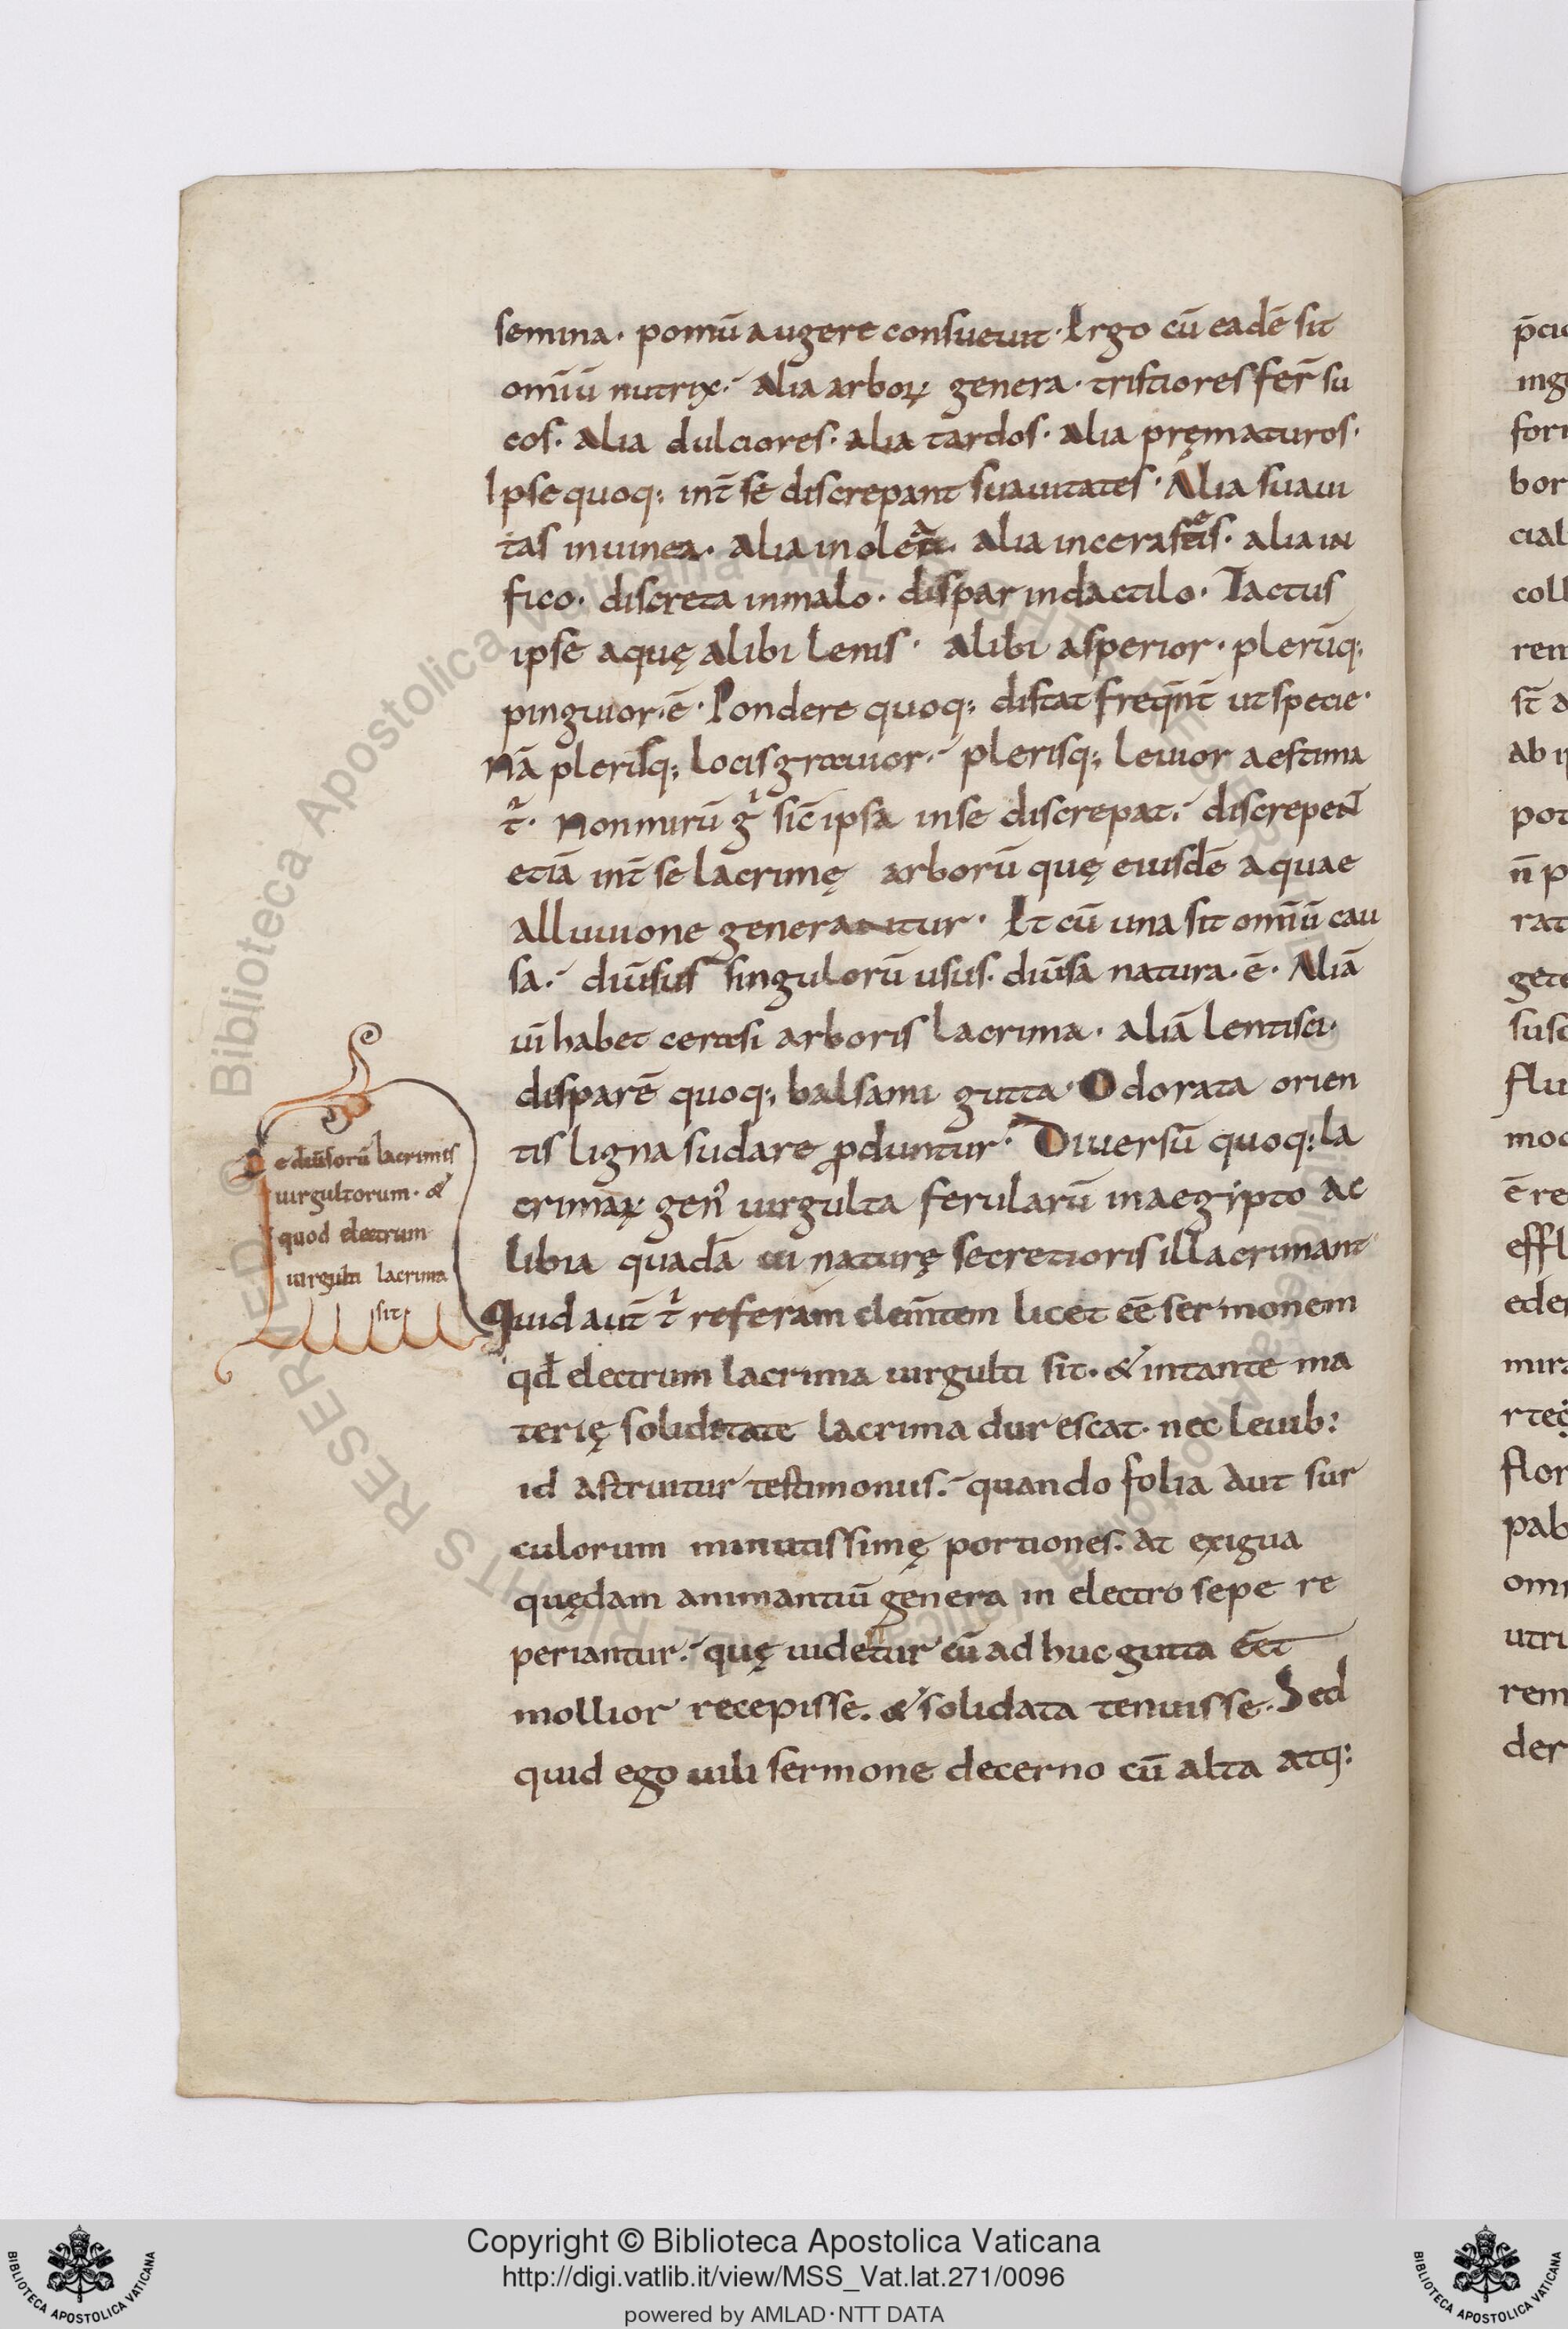 semina· pomū augere consueuit· Ergo cū eadē sit
om̄iū nutrix·́ alia arboꝝ genera· tristiores fer̄ su
cos· alia dulciores· alia tardos· alia pręmaturos·
Ipse quoq; int̄ se discrepant suauitates· Alia suaui
tas inuinea· alia in olea· alia incerasies· alia in
fico· discreta inmalo· dispar indactilo· Tactus
ipse aquę alibi lenis· alibi asperior· plerūq;
pinguior·ē· Pondere quoq; distat freq̄nt̄ ut specie·
Nā plerisq; locis grauior·́ plerisq; leuior aestima
t᷑· Non mirū gͥ sic̄ ipsa inse discrepat·́ discrepent̄
etiā int̄ se lacrimę arborū quę eiusdē aquae
alluuione generantur· Et cū una sit om̄iū cau
sa·́ diūsus singulorū usus· diūsa natura·ē· Aliā
uī habet cerasi arboris lacrima· aliā lentisci·
disparē quoq; balsami gutta· Odorata orien
tis ligna sudare ꝓduntur· Diuersū quoq; la
crimaꝝ gen᾽ uirgulta ferularū inaegipto ac
libia quadā ui naturę secretioris illacrimant·
e diūsorū lacrimis
uirgultorum· &
quod electrum
uirgulti lacrima
sit·
Quid aut̄ t᷑ referam clem̄tem licet eē sermonem
qđ electrum lacrima uirgulti sit· & intante ma
terię soliditate lacrima durescat· nec leuib:
id astruitur testimoniis·́ quando folia aut sur
culorum minutissimę portiones· at exigua
quędam animantiū genera in electro sepe re
periantur·́ quę uidetur cū adhuc gutta eēt
mollior recepisse· & solidata tenuisse· Sed
quid ego uili sermone decerno cū alta atq:
p̄cio
ing
for
bor
cial
coll
rem
st̄ a
ab i
pot
n̄ p
rat
gete
susc
flu
moc
ē re
effl
ede
mira
flor
pab
om
utri
rem
der
© Biblioteca Apostolica Vaticana ALL RIGHTS RESERVED
Copyright © Biblioteca Apostolica Vaticana
http://digi.vatlib.it/view/MSS_Vat.lat.271/0096
powered by AMLAD·NTT DATA
BIBLIOTECA APOSTOLICA VATICANA
BIBLIOTECA APOSTOLICA VATICANA